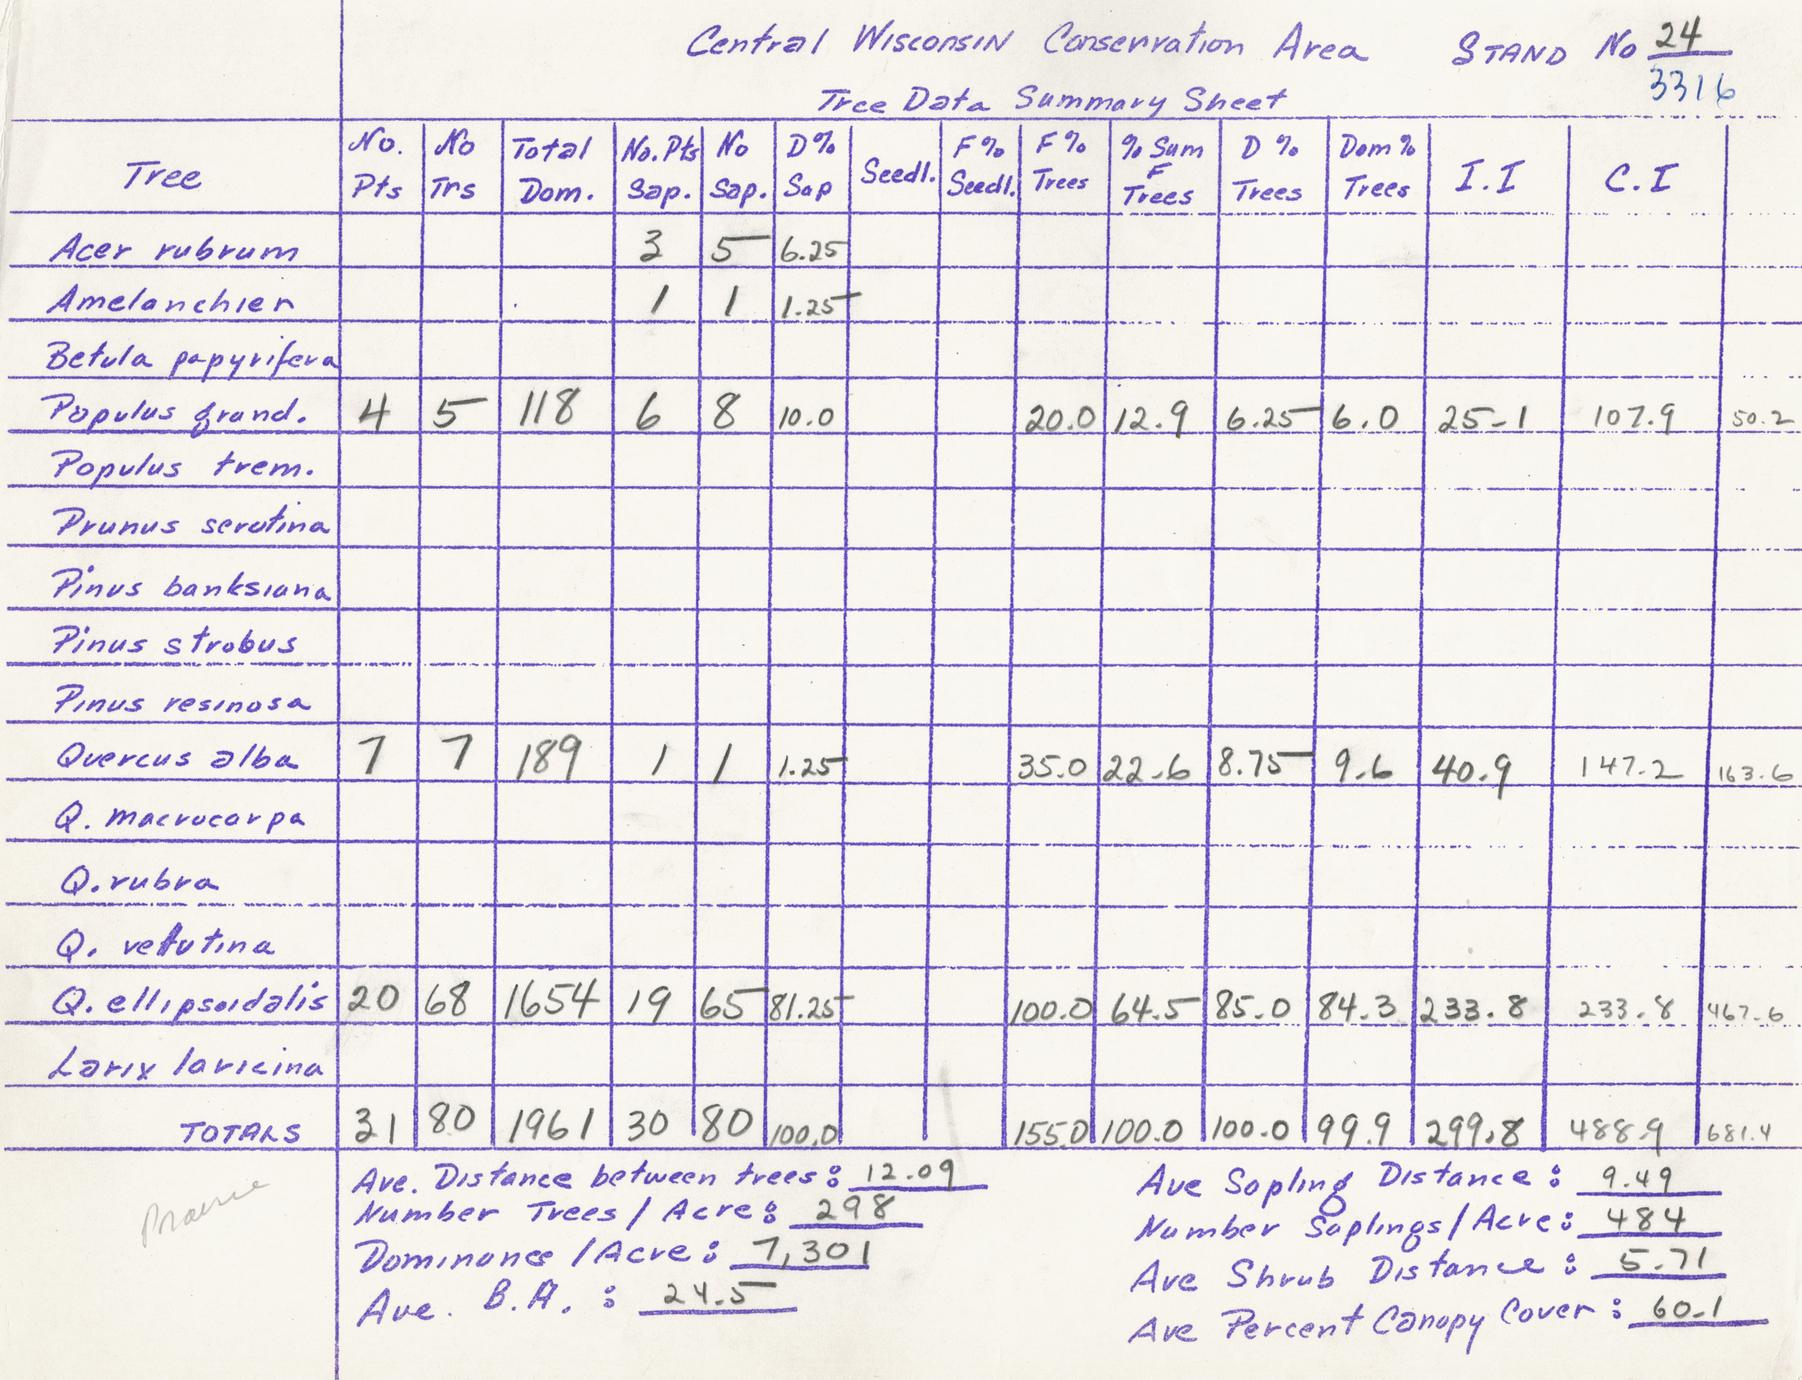 Central Wisconsin Conservation Area STAND No 24
3316
Tree Data Summary Sheet
Tree No. Pts No Trs Total Dom. No. Pts Sap. No Sap. D% Sap Seedl. F% Seedl. F% Trees % Sum F Trees D % Trees Dom % Trees I.I C.I
Acer rubrum 3 5 6.25
Amelanchier 1 1 1.25
Betula papyrifera
Populus grand. 4 5 118 6 8 10.0 20.0 12.9 6.25 6.0 25.1 107.9 50.2
Populus trem.
Prunus serotina
Pinus banksiana
Pinus strobus
Pinus resinosa
Quercus alba 7 7 189 1 1 1.25 35.0 22.6 8.75 9.6 40.9 147.2 163.6
Q. macrocarpa
Q. rubra
Q. velutina
Q. ellipsoidalis 20 68 1654 19 65 81.25 100.0 64.5 85.0 84.3 233.8 233.8 467.6
Larix laricina
TOTALS 31 80 1961 30 80 100.0 155.0 100.0 100.0 99.9 299.8 488.9 681.4
Prairie
Ave. Distance between trees: 12.09
Number Trees / Acre: 298
Dominance / Acre: 7,301
Ave. B.A. : 24.5
Ave Sapling Distance: 9.49
Number Saplings/Acre: 484
Ave Shrub Distance: 5.71
Ave Percent Canopy Cover: 60.1